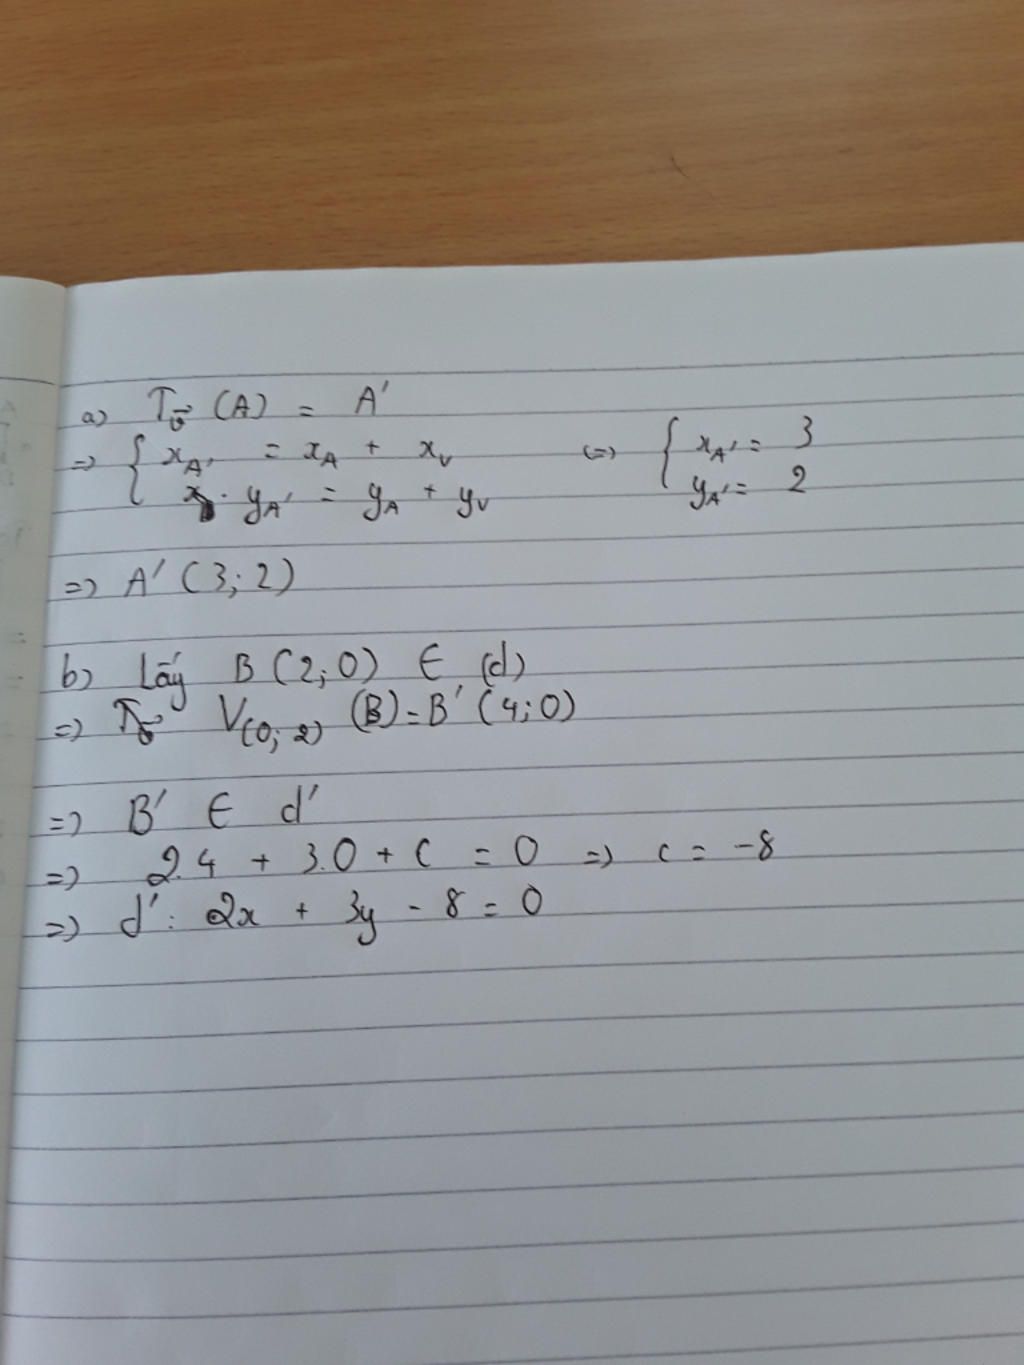 a) T_v⃗ (A) = A'
=> { x_A' = x_A + x_v <=> { x_A' = 3
y_A' = y_A + y_v y_A' = 2
=> A' (3; 2)
b) Lấy B (2; 0) ∈ (d)
=> V_(0; 2) (B) = B' (4; 0)
=> B' ∈ d'
=> 2.4 + 3.0 + c = 0 => c = -8
=> d': 2x + 3y - 8 = 0